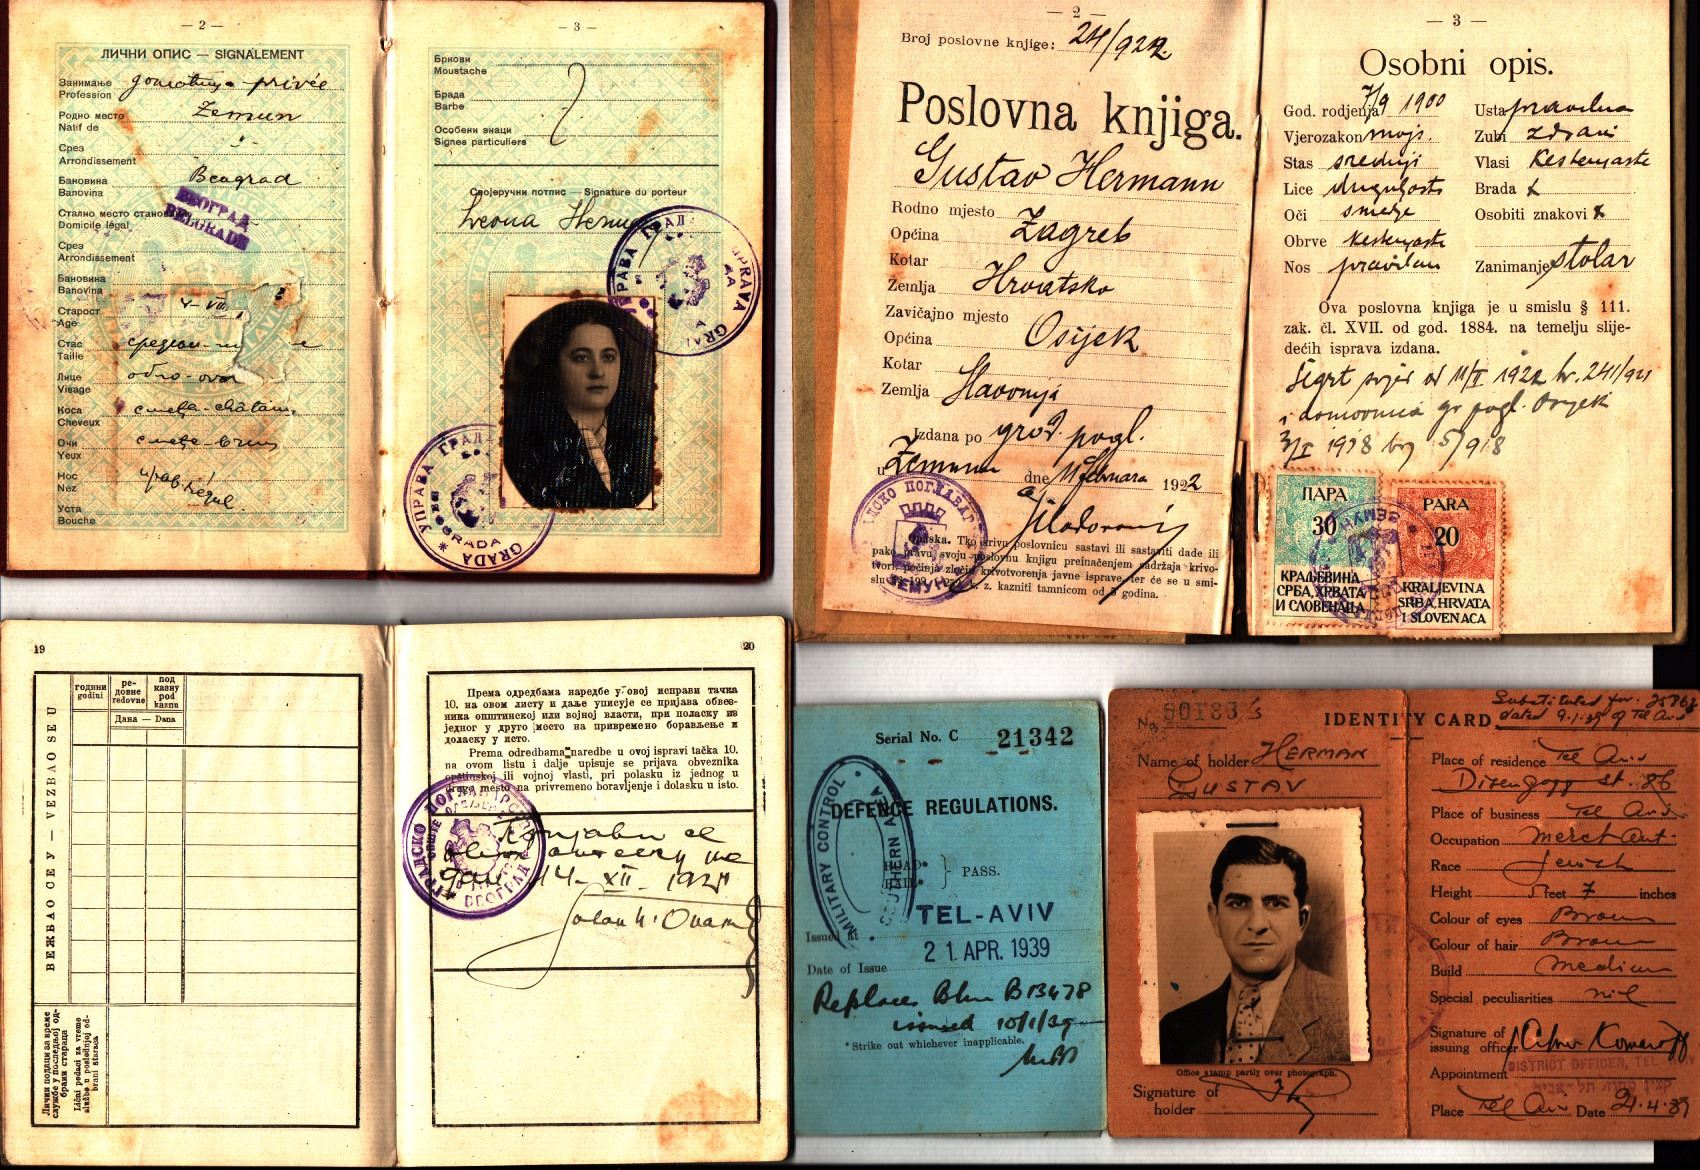 — 2 —
ЛИЧНИ ОПИС — SIGNALEMENT
Занимање
Profession privée
Родно место Zemun
Natif de
Срез
Arrondissement
Бановина Beograd
Banovina
БЕОГРАД
BELGRADE
Стално место
Domicile légal
Срез
Arrondissement
Бановина
Banovina
Старост
Age
Стас
Taille
Лице
Visage
Коса смеђа-châtain
Cheveux
Очи смеђе-
Yeux
Нос
Nez
Уста
Bouche
— 3 —
Бркови
Moustache
Брада
Barbe
Особени знаци
Signes particuliers
Својеручни потпис — Signature du porteur
УПРАВА ГРАДА
UPRAVA GRADA
УПРАВА ГРАДА
BEOGRADA
— 2 —
Broj poslovne knjige: 24/922.
Poslovna knjiga.
Gustav Hermann
Rodno mjesto
Općina Zagreb
Kotar
Zemlja Hrvatska
Zavičajno mjesto
Općina Osijek
Kotar
Zemlja Slavonija
Izdana po grad. pogl.
u Zemunu dne 11 februara 1922
Opaska. Tko krivu poslovnicu sastavi ili sastaviti dade ili
pako pravu svoju poslovnu knjigu preinačenjem sadržaja krivo-
tvori, počinja zločin krivotvorenja javne isprave, ter će se u smi-
k. z. kazniti tamnicom od 5 godina.
ЗЕМУН
— 3 —
Osobni opis.
God. rodjenja 7/9 1900 Usta pravilna
Vjerozakon mojs. Zubi zdravi
Stas srednji Vlasi kestenjaste
Lice duguljasto Brada x
Oči smedje Osobiti znakovi x
Obrve kestenjaste
Nos pravilan Zanimanje stolar
Ova poslovna knjiga je u smislu § 111.
zak. čl. XVII. od god. 1884. na temelju slije-
dećih isprava izdana.
Šegrt svjed od 11/I 1922 br. 241/921
i domovnica gr pogl. Osijek
3/I 1918 broj 5/918
ПАРА
30
КРАЉЕВИНА
СРБА, ХРВАТА
И СЛОВЕНАЦА
PARA
20
KRALJEVINA
SRBA, HRVATA
I SLOVENACA
19
ВЕЖБАО СЕ У — VEZBAO SE U
години
godini
ре-
довне
redovne
под
казну
pod
kaznu
Дана — Dana
Лични подаци за време
службе у последњој од-
брани старања
Lični pedaci za vreme
službe u poslednjoj od-
brani staraca
20
Према одредбама наредбе у овој исправи тачка
10. на овом листу и даље уписује се пријава обвез-
ника општинској или војној власти, при поласку из
једног у друго место на привремено борављење и
доласку у исто.
Prema odredbama naredbe u ovoj ispravi tačka 10.
na ovom listu i dalje upisuje se prijava obveznika
opštinskoj ili vojnoj vlasti, pri polasku iz jednog u
drugo mesto na privremeno boravljenje i dolasku u isto.
14-XII-
БЕОГРАД
Serial No. C 21342
DEFENCE REGULATIONS.
MILITARY CONTROL
SOUTHERN AREA
ROAD*
RAIL* } PASS.
Issued at TEL-AVIV
Date of Issue 21. APR. 1939
Replaces Blue B13478
issued 10/1/39
*Strike out whichever inapplicable.
No.
IDENTITY CARD
Substituted for 25862
dated 9.1.39 of Tel Aviv
Name of holder HERMAN
GUSTAV
Office stamp partly over photograph.
Signature of
holder
Place of residence Tel Aviv
Dizengoff St. 86
Place of business Tel Aviv
Occupation Merchant.
Race Jewish
Height 5 feet 7 inches
Colour of eyes Brown
Colour of hair Brown
Build Medium
Special peculiarities nil
Signature of
issuing officer
Appointment DISTRICT OFFICER, TEL AVIV
Place Tel Aviv Date 21.4.39